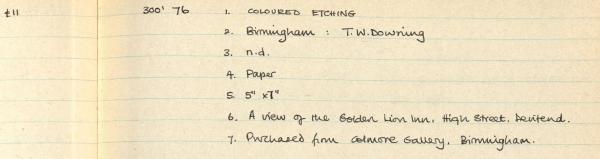 £11 300' 76 1. COLOURED ETCHING
2. Birmingham : T.W. Downing
3. n.d.
4. Paper
5. 5" x 7"
6. A view of the Golden Lion Inn, High Street, Deritend.
7. Purchased from Colmore Gallery, Birmingham.